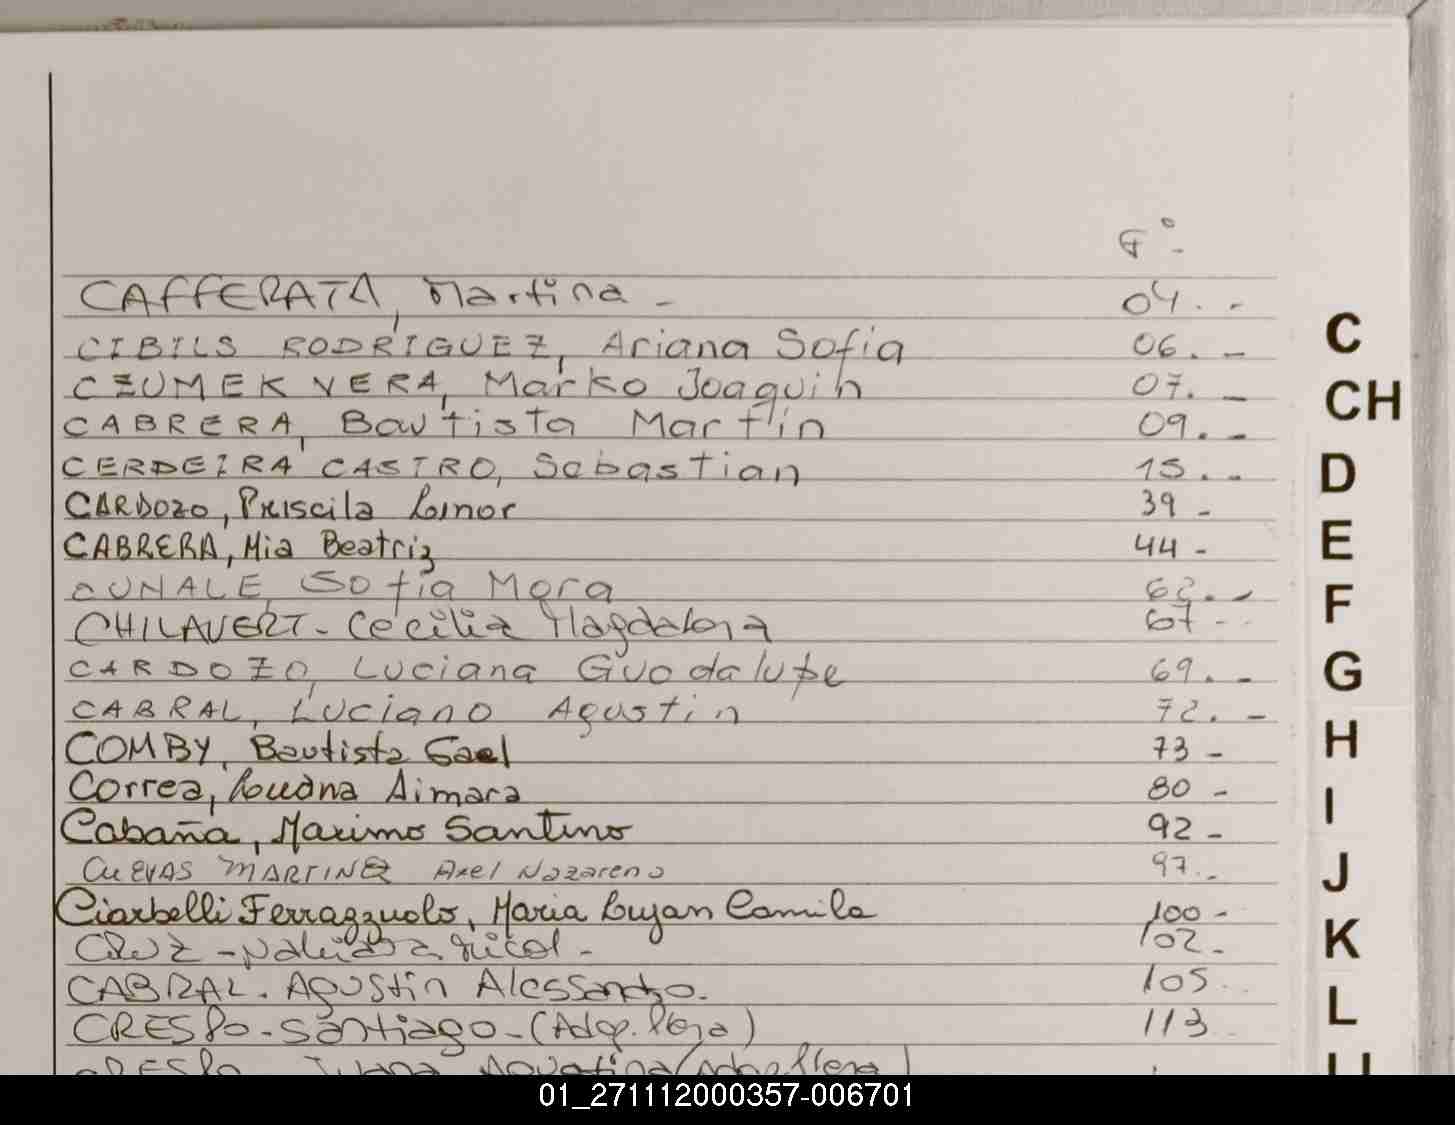 Fº.
CAFFERATA, Martina - 04. -
CIBILS RODRIGUEZ, Ariana Sofia 06. -
CZUMEK VERA, Marko Joaquin 07. -
CABRERA, Bautista Martin 09. -
CERDEIRA CASTRO, Sebastian 15. -
CARDOZO, Priscila Leonor 39 -
CABRERA, Mia Beatriz 44 -
CUNALE, Sofia Mora 62. -
CHILAVERT - Cecilia Magdalena 67 -
CARDOZO, Luciana Guadalupe 69. -
CABRAL, Luciano Agustin 72. -
COMBY, Bautista Gael 73 -
Correa, Luana Aimara 80 -
Cabaña, Maximo Santino 92 -
CUEVAS MARTINEZ Axel Nazareno 97. -
Ciarbelli Ferrazzuolo, Maria Lujan Camila 100 -
CRUZ - Nicol - 102 -
CABRAL. Agustin Alessandro. 105
CRESPO - Santiago - (Adop. Plena) 113
CRESPO Juana Agustina (Adop Plena)
C
CH
D
E
F
G
H
I
J
K
L
01_271112000357-006701